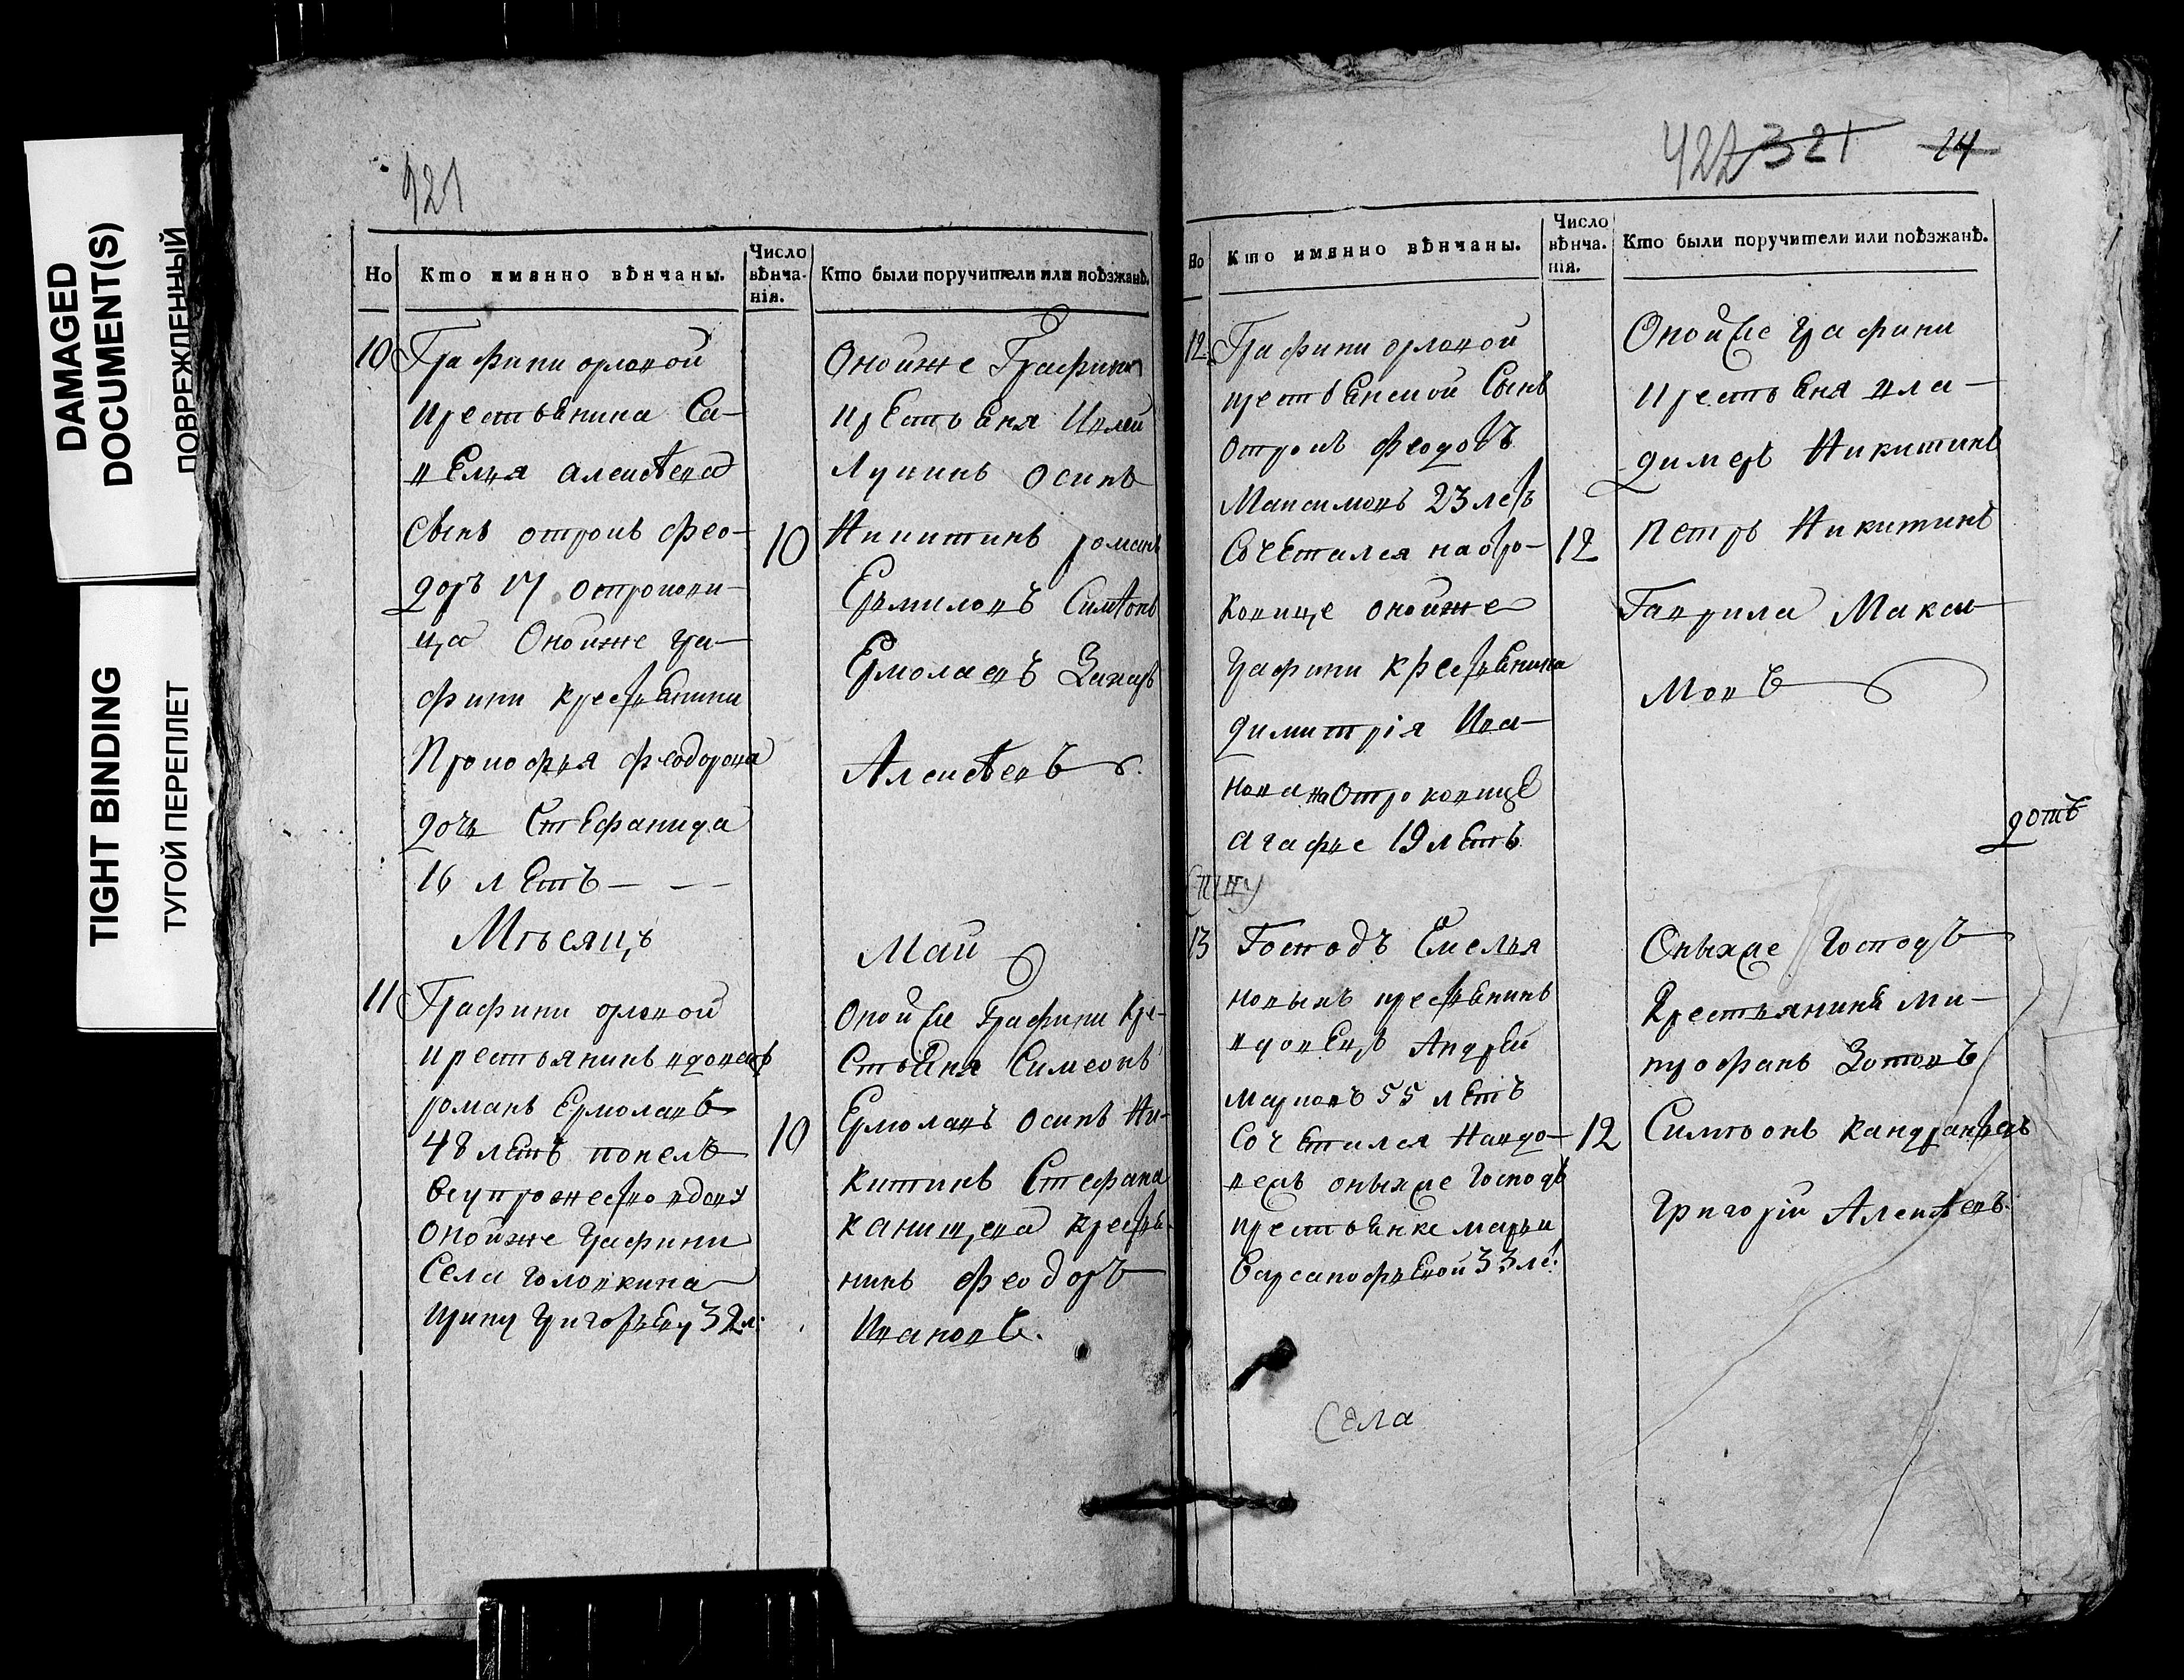 DAMAGED
DOCUMENT(S)
ПОВРЕЖДЕННЫЙ
TIGHT BINDING
ТУГОЙ ПЕРЕПЛЕТ
421
Но
Кто имянно вѣнчаны.
Число
вѣнча-
нія.
Кто были поручители или поѣзжанѣ.
10 Графини орловой
крестьянина Са-
велья алексѣева
сынъ отрокъ фео-
доръ 17 остроковни-
ца Онойже гра-
фини крестьянини
Прокофья феодорова
дочь Стефанида
16 летъ — — —
10
Онойже Графини
крестьяня Ивлей
Лукинъ осипъ
Никитинъ романъ
Ермиловъ Симѣонъ
Ермолаевъ Захаръ
Алексѣевъ
Мѣсяцъ
Май
11 Графини орловой
крестьянинъ вдовецъ
романъ Ермолавъ
48 летъ понелъ
всупрожество вдову
онойже графини
Села головкина
Ирину Григорьеву 32 л:
10
Онойже Графини Кре-
стьяня Симеонъ
Ермолавъ осипъ Ни-
китинъ Стефана
канищева крестья-
нинъ феодоръ
Ивановъ.
422 321 24
Но
Кто имянно вѣнчаны.
Число
вѣнча-
нія.
Кто были поручители или поѣзжанѣ.
12. Графини орловой
крестьянской Сынъ
отрокъ феодоръ
Максимовъ 23 летъ
Сочетался на отро-
ковице онойже
графини крестьянина
димитрія Ива-
нова на Отроковице
агафье 19 летъ
12
Онойже графини
крестьяня вла-
димеръ Никитинъ
петръ Никитинъ
Гаврила Макси-
мовъ
дотъ
13 Господъ Емелья
новыхъ крестьянинъ
вдовецъ Андрей
марковъ 55 летъ
Сочетался на вдо-
веце оныхже господъ
крестьянке марьи
Варсанофьевой 33 ле:
12
Оныхже господъ
Крестьянинъ Ми-
трофанъ Зотовъ
Симѣонъ кандратьевъ
Григорій Алексѣевъ.
Села